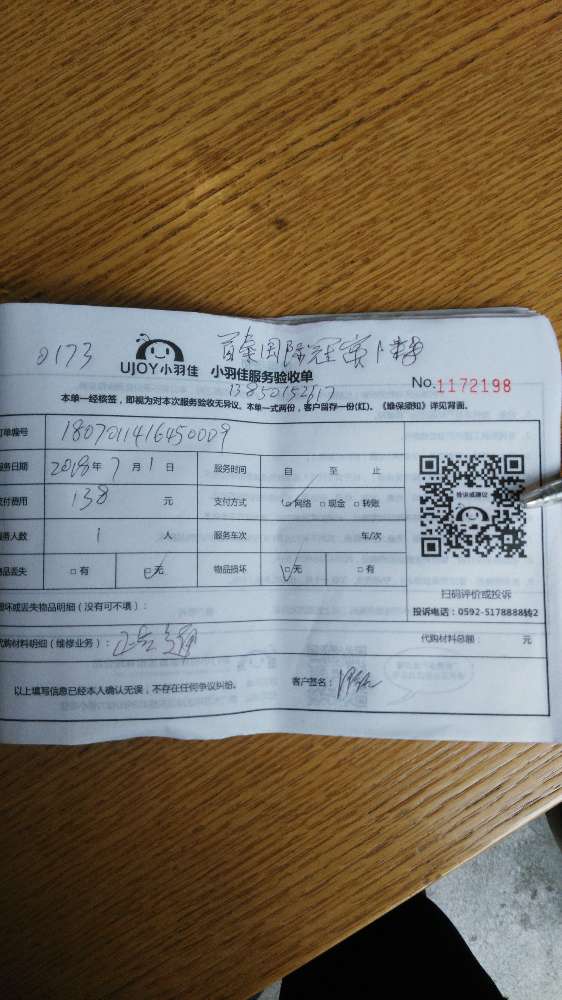 0173
UJOY小羽佳 小羽佳服务验收单
No.1172198
本单一经核签，即视为对本次服务验收无异议。本单一式两份，客户留存一份(红)。《维保须知》详见背面。
单编号 1807011416450009
务日期 2018年7月1日 服务时间 自 至 止
付费用 138 元 支付方式 □网络 □现金 □转账
务人数 1 人 服务车次 车/次
品丢失 □有 □无 物品损坏 □无 □有
投诉或建议
扫码评价或投诉
投诉电话：0592-5178888转2
坏或丢失物品明细（没有可不填）：
代购材料明细（维修业务）：
代购材料总额： 元
以上填写信息已经本人确认无误，不存在任何争议纠纷。 客户签名：